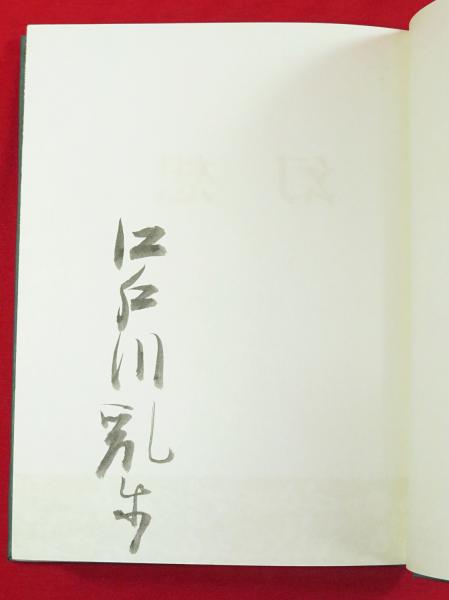 江戸川乱歩
幻想